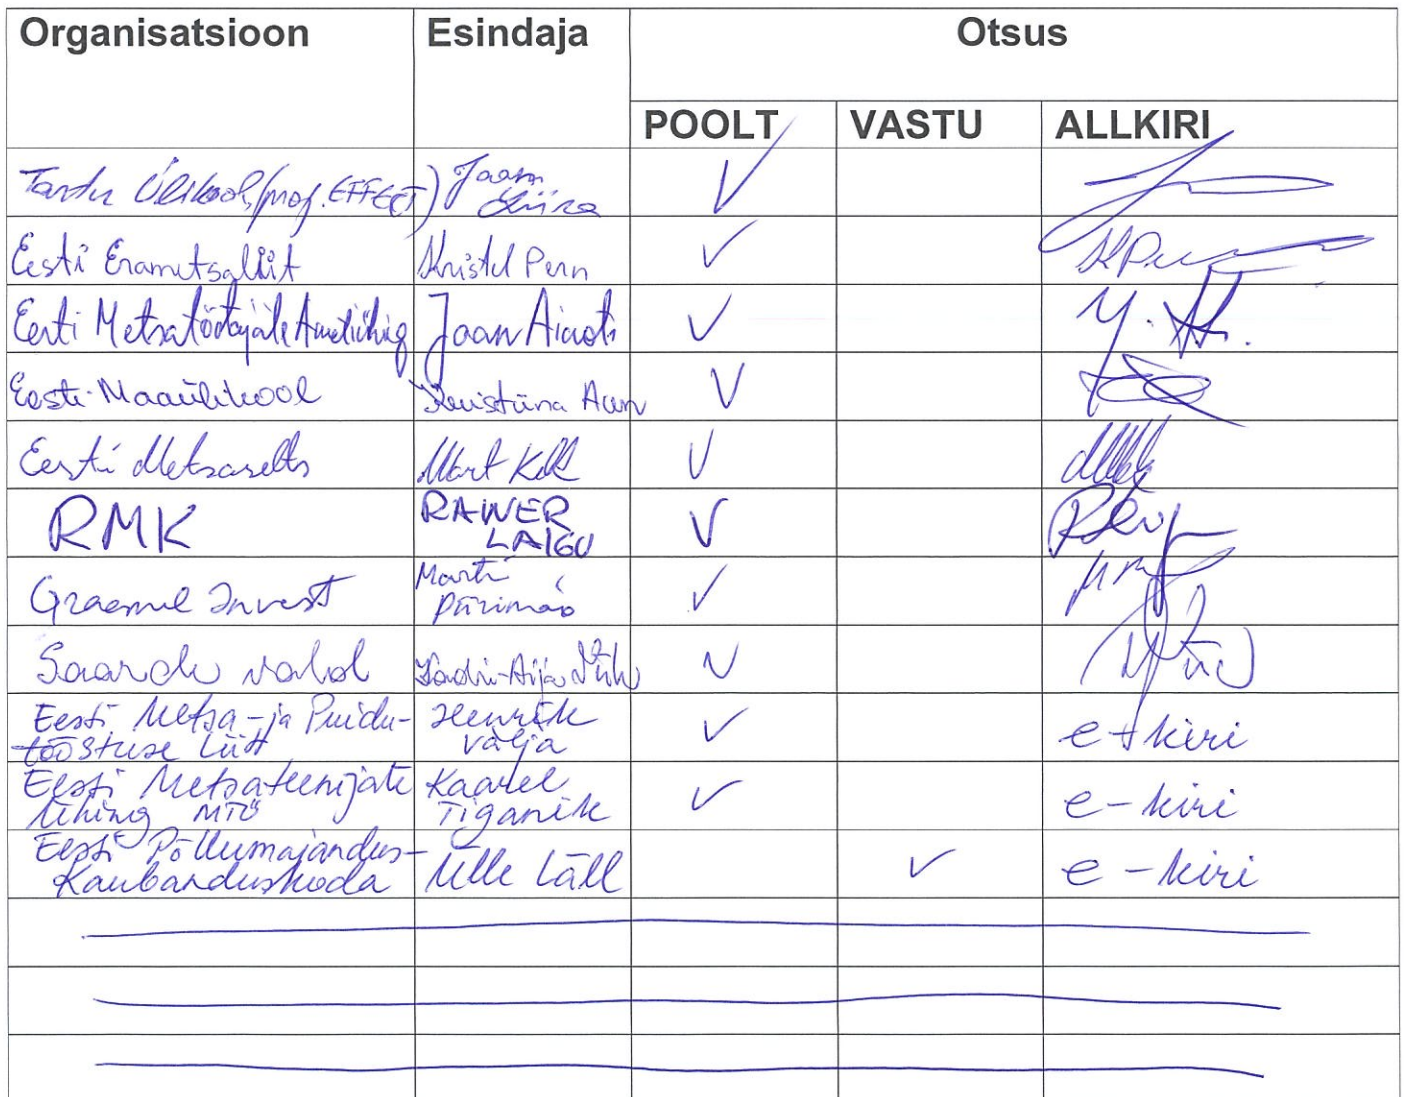 Organisatsioon Esindaja Otsus
POOLT VASTU ALLKIRI
Tartu Ülikool, (proj. EFFECT) Jaan
Liira
Eesti Erametsaliit Kristel Penn
Eesti Metsatöötajate Ametiühing Jaan Aiaots
Eesti Maaülikool Kristiina Aun
Eesti Metsaselts Mart Kelk
RMK RAINER
LAIGU
Graanul Invest Marti
Piirimäe
Saarde vald Kadri-Aija
Eesti Metsa- ja Puidu- Henrik
tööstuse Liit Välja e-kiri
Eesti Metsateenijate Kaarel
Ühing MTÜ Tiganik e-kiri
Eesti Põllumajandus-
Kaubanduskoda Ülle Läll e-kiri